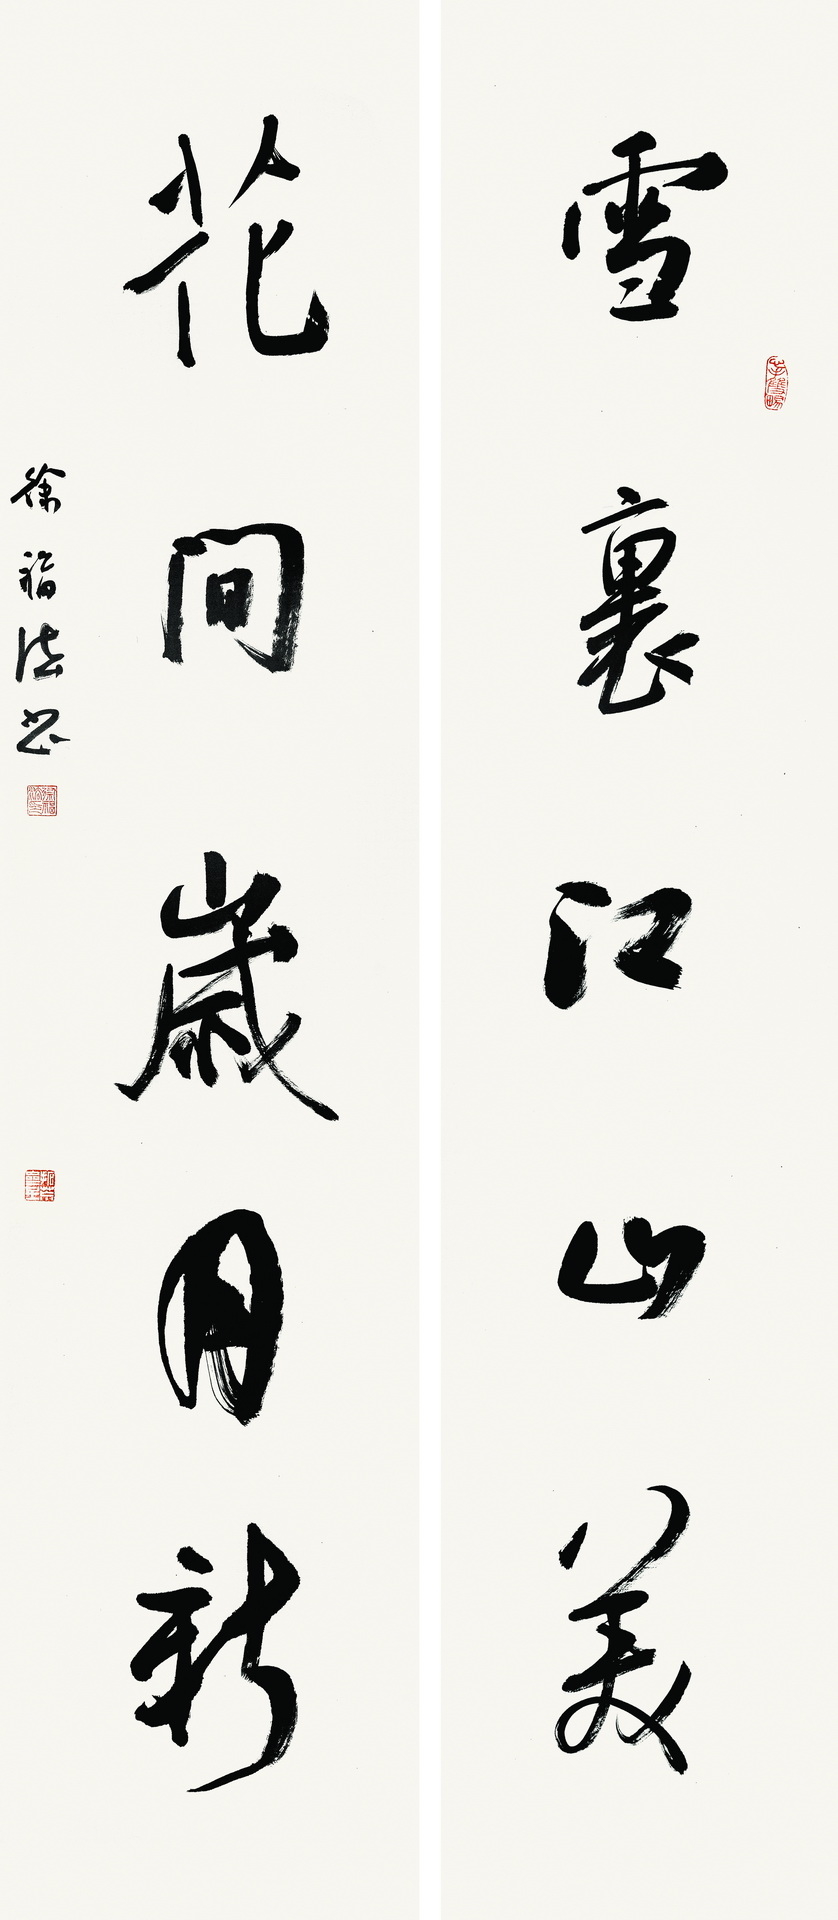 雪裏江山美
花間歲月新
徐福法书